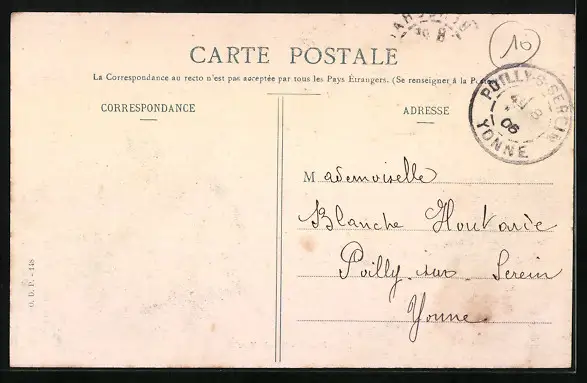 CARTE POSTALE
La Correspondance au recto n'est pas acceptée par tous les Pays Étrangers. (Se renseigner à la Poste
CORRESPONDANCE
ADRESSE
10
POILLY-S-SEREIN
8
06
YONNE
Mademoiselle
Blanche
Poilly sur Serein
Yonne
O. D. P. - 148